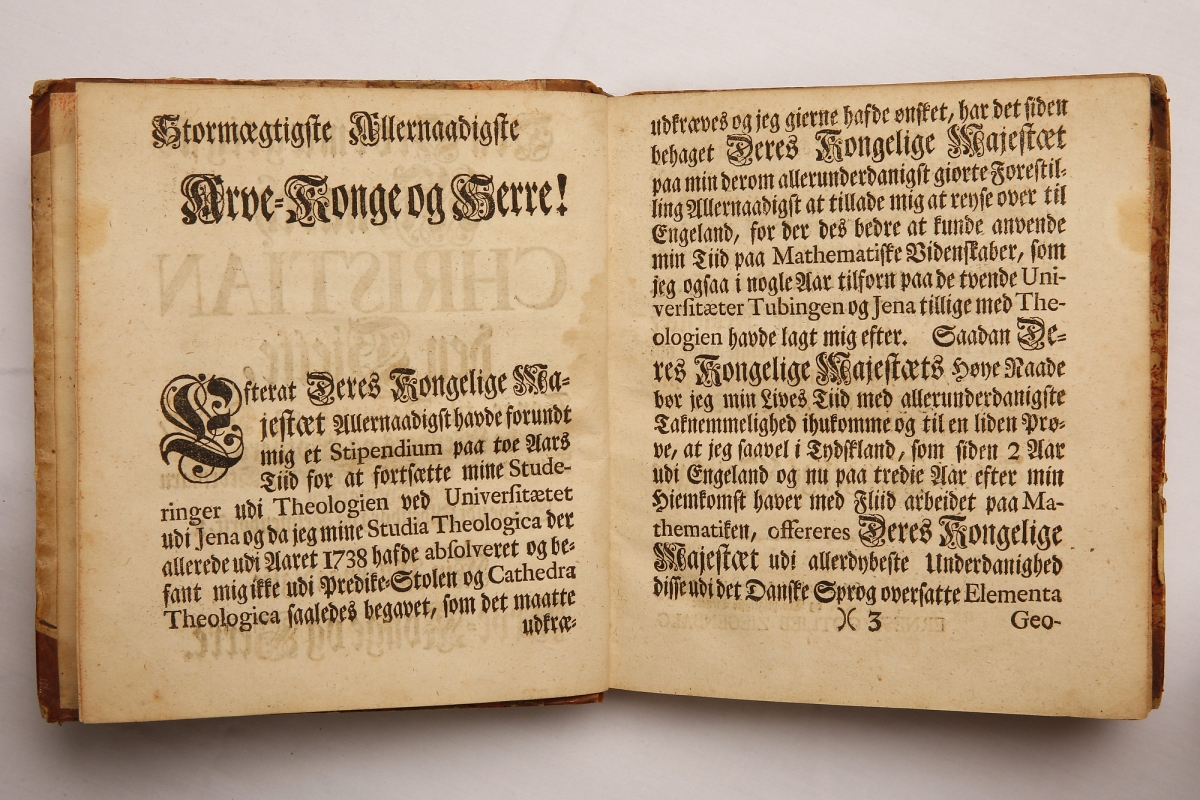 Stormægtigste Allernaadigste
Arve-Konge og Herre!
Efterat Deres Kongelige Ma-
jestæt Allernaadigst havde forundt
mig et Stipendium paa toe Aars
Tiid for at fortsætte mine Stude-
ringer udi Theologien ved Universitætet
udi Jena og da jeg mine Studia Theologica der
allerede udi Aaret 1738 hafde absolveret og be-
fant mig ikke udi Predike-Stolen og Cathedra
Theologica saaledes begavet, som det maatte
udkræ-
udkræves og jeg gierne hafde ønsket, har det siden
behaget Deres Kongelige Majestæt
paa min derom allerunderdanigst giorte Forestil-
ling Allernaadigst at tillade mig at reyse over til
Engeland, for der des bedre at kunde anvende
min Tiid paa Mathematiske Videnskaber, som
jeg ogsaa i nogle Aar tilforn paa de tvende Uni-
versitæter Tubingen og Jena tillige med The-
ologien havde lagt mig efter. Saadan De-
res Kongelige Majestæts Høye Naade
bør jeg min Lives Tiid med allerunderdanigste
Taknemmelighed ihukomme og til en liden Prø-
ve, at jeg saavel i Tydskland, som siden 2 Aar
udi Engeland og nu paa tredie Aar efter min
Hiemkomst haver med Fliid arbeidet paa Ma-
thematiken, offereres Deres Kongelige
Majestæt udi allerdybeste Underdanighed
disse udi det Danske Sprog oversatte Elementa
)( 3 Geo-